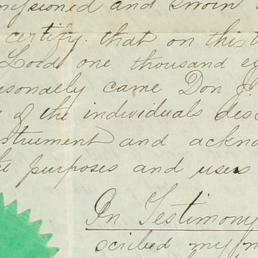 missioned and sworn
certify that on this
Lord one thousand ei
rsonally came Don J.
& the individuals desc
strument and ackno
purposes and uses
In Testimony
scribed my